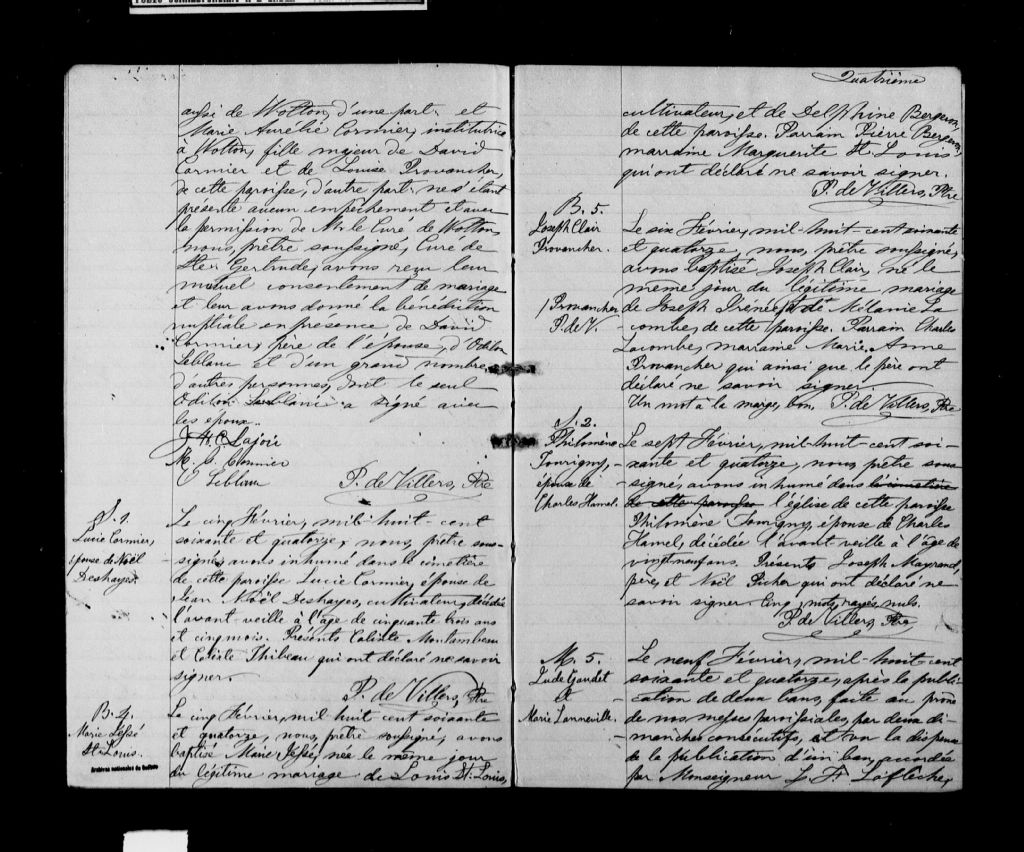 aussi de Wotton, d'une part, et
Marie Aurélie Cormier, institutrice
à Wotton, fille majeur de David
Cormier et de Louise Provancher,
de cette paroisse, d'autre part, ne s'étant
présenté aucun empêchement et avec
la permission de Mr le Curé de Wotton,
nous, prêtre soussigné, Curé de
Ste Gertrude, avons reçu leur
mutuel consentement de mariage
et leur avons donné la bénédiction
nuptiale en présence de David
Cormier, père de l'épouse, d'Odilon
Leblanc et d'un grand nombre
d'autres personnes, dont le seul
Odilon Leblanc a signé avec
les époux.
J. H. C. Lajoie
M. C. Cormier
Leblanc
P. de Villers, Ptre
S. 1.
Lucie Cormier,
épouse de Noël
Deshayes
Le cinq Février, mil-huit-cent
soixante et quatorze, nous, prêtre sous-
signé, avons inhumé dans le cimetière
de cette paroisse Lucie Cormier, épouse de
Jean Noël Deshayes, cultivateur, décédée
l'avant-veille à l'âge de cinquante trois ans
et cinq mois. Présents Calixte Montambeau
et Calixte Thibeau qui ont déclaré ne savoir
signer.
P. de Villers, Ptre
B. 4.
Marie
St. Louis.
Le cinq Février, mil huit cent soixante
et quatorze, nous, prêtre soussigné, avons
baptisé Marie née le même jour
du légitime mariage de Louis St. Louis,
Archives nationales du Québec
Quatrième
cultivateur, et de Delphine Bergeron,
de cette paroisse. Parrain Pierre Bergeron,
marraine Marguerite St. Louis
qui ont déclaré ne savoir signer.
P. de Villers, Ptre
B. 5.
Joseph Clair
Provancher.
Le six Février, mil-huit-cent-soixante
et quatorze, nous, prêtre soussigné,
avons baptisé Joseph Clair, né le
même jour du légitime mariage
/ Provancher
P. de V.
de Joseph Irénée et de Mélanie La-
combe, de cette paroisse. Parrain Charles
Lacombe, marraine Marie Anne
Provancher qui ainsi que le père ont
déclaré ne savoir signer.
Un mot à la marge, bon. P. de Villers, Ptre
S. 2.
Philomène
Tourigny,
épouse de
Charles Hamel.
Le sept Février, mil-huit-cent soi-
xante et quatorze, nous, prêtre sous-
signé, avons inhumé dans le cimetière
de cette paroisse l'église de cette paroisse
Philomène Tourigny, épouse de Charles
Hamel, décédée l'avant veille à l'âge de
vingt neuf ans. Présents Joseph Mayrand,
père, et Noël Picher qui ont déclaré ne
savoir signer. Cinq mots rayés nuls.
P. de Villers, Ptre
M. 5.
Jude Gaudet
&
Marie Lanneville.
Le neuf Février, mil-huit-cent
soixante et quatorze, après la publi-
cation de deux bans, faite au prône
de nos messes paroissiales, par deux di-
manches consécutifs, et vu la dispense
de la publication d'un ban, accordée
par Monseigneur L. F. Laflèche,